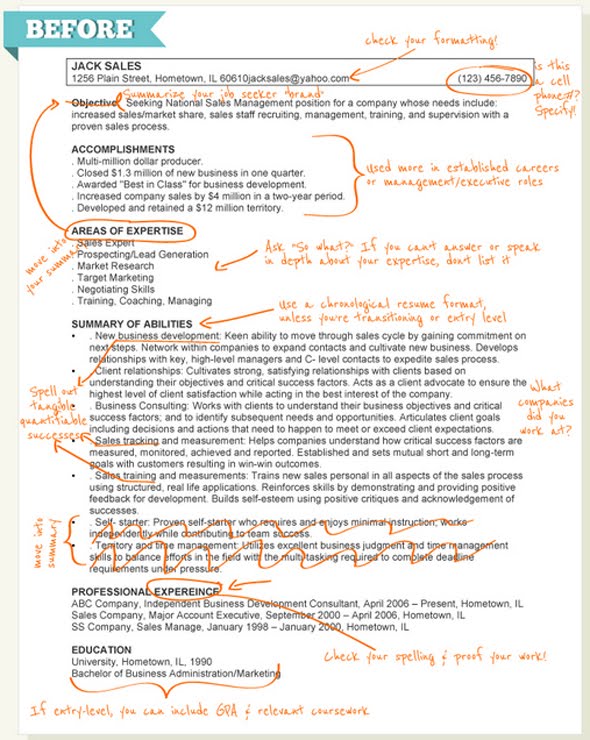 BEFORE
check your formatting!
JACK SALES
1256 Plain Street, Hometown, IL 60610jacksales@yahoo.com
(123) 456-7890
is this
a cell
phone #?
Specify!
Summarize your job seeker "brand"
Objective: Seeking National Sales Management position for a company whose needs include:
increased sales/market share, sales staff recruiting, management, training, and supervision with a
proven sales process.
ACCOMPLISHMENTS
. Multi-million dollar producer.
. Closed $1.3 million of new business in one quarter.
. Awarded "Best in Class" for business development.
. Increased company sales by $4 million in a two-year period.
. Developed and retained a $12 million territory.
Used more in established careers
or management/executive roles
AREAS OF EXPERTISE
. Sales Expert
. Prospecting/Lead Generation
. Market Research
. Target Marketing
. Negotiating Skills
. Training, Coaching, Managing
move into
your summary
Ask "So what?" If you cant answer or speak
in depth about your expertise, dont list it
Use a chronological resume format,
unless you're transitioning or entry level
SUMMARY OF ABILITIES
• . New business development: Keen ability to move through sales cycle by gaining commitment on
next steps. Network within companies to expand contacts and cultivate new business. Develops
relationships with key, high-level managers and C- level contacts to expedite sales process.
• . Client relationships: Cultivates strong, satisfying relationships with clients based on
understanding their objectives and critical success factors. Acts as a client advocate to ensure the
highest level of client satisfaction while acting in the best interest of the company.
• . Business Consulting: Works with clients to understand their business objectives and critical
success factors; and to identify subsequent needs and opportunities. Articulates client goals
including decisions and actions that need to happen to meet or exceed client expectations.
• . Sales tracking and measurement: Helps companies understand how critical success factors are
measured, monitored, achieved and reported. Established and sets mutual short and long-term
goals with customers resulting in win-win outcomes.
• . Sales training and measurements: Trains new sales personal in all aspects of the sales process
using structured, real life applications. Reinforces skills by demonstrating and providing positive
feedback for development. Builds self-esteem using positive critiques and acknowledgement of
successes.
• . Self- starter: Proven self-starter who requires and enjoys minimal instruction, works
independently while contributing to team success.
• . Territory and time management: Utilizes excellent business judgment and time management
skills to balance efforts in the field with the multitasking required to complete deadline
requirements under pressure.
Spell out
tangible
quantifiable
successes
What
companies
did you
work at?
move into
summary
PROFESSIONAL EXPEREINCE
ABC Company, Independent Business Development Consultant, April 2006 – Present, Hometown, IL
Sales Company, Major Account Executive, September 2000 – April 2006, Hometown, IL
SS Company, Sales Manage, January 1998 – January 2000, Hometown, IL
Check your spelling & proof your work!
EDUCATION
University, Hometown, IL, 1990
Bachelor of Business Administration/Marketing
If entry-level, you can include GPA & relevant coursework